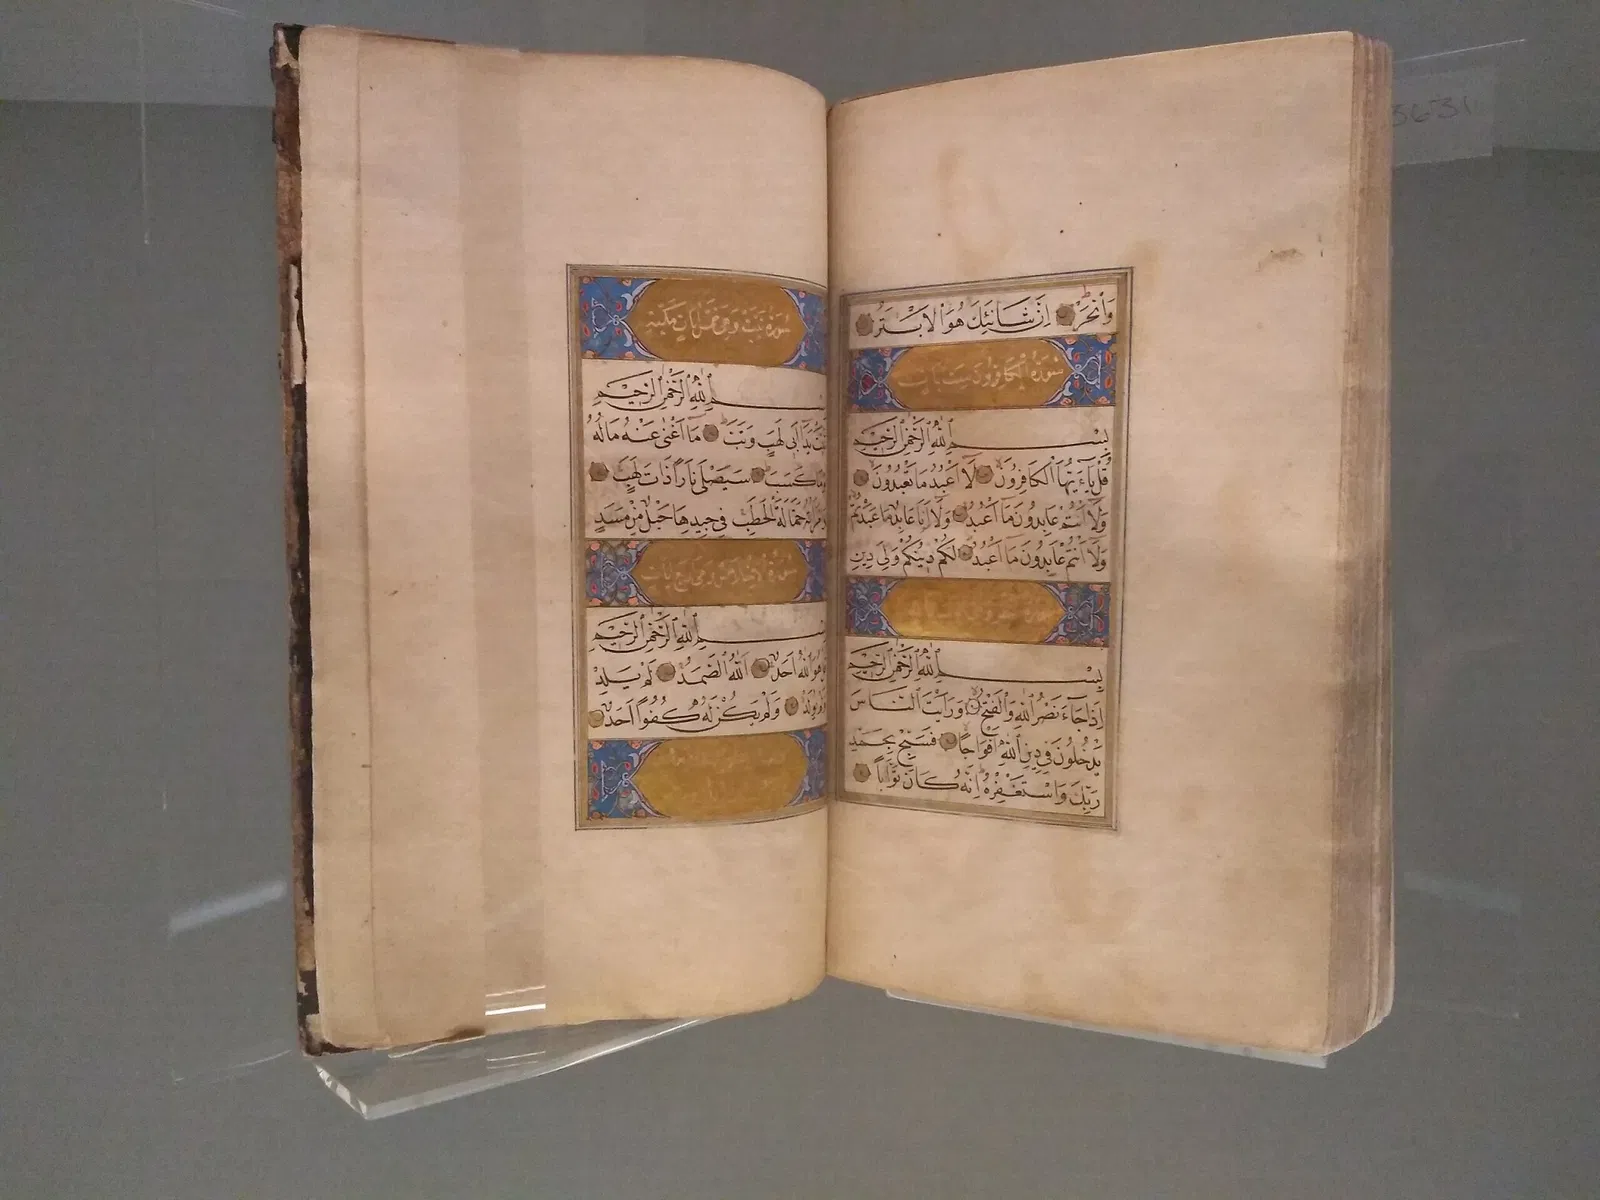 وَانْحَرْ إِنَّ شَانِئَكَ هُوَ الْأَبْتَرُ
سورة الكافرون ست آيات
بِسْمِ اللَّهِ الرَّحْمَنِ الرَّحِيمِ
قُلْ يَاءَيُّهَا الْكَافِرُونَ لَا أَعْبُدُ مَا تَعْبُدُونَ
وَلَا أَنْتُمْ عَابِدُونَ مَا أَعْبُدُ وَلَا أَنَا عَابِدٌ مَا عَبَدْتُمْ
وَلَا أَنْتُمْ عَابِدُونَ مَا أَعْبُدُ لَكُمْ دِينُكُمْ وَلِيَ دِينِ
بِسْمِ اللَّهِ الرَّحْمَنِ الرَّحِيمِ
إِذَا جَاءَ نَصْرُ اللَّهِ وَالْفَتْحُ وَرَأَيْتَ النَّاسَ
يَدْخُلُونَ فِي دِينِ اللَّهِ أَفْوَاجًا فَسَبِّحْ بِحَمْدِ
رَبِّكَ وَاسْتَغْفِرْهُ إِنَّهُ كَانَ تَوَّابًا
سورة تبت وهي خمس آيات مكية
بِسْمِ اللَّهِ الرَّحْمَنِ الرَّحِيمِ
تَبَّتْ يَدَا أَبِي لَهَبٍ وَتَبَّ مَا أَغْنَى عَنْهُ مَالُهُ
وَمَا كَسَبَ سَيَصْلَى نَارًا ذَاتَ لَهَبٍ
وَامْرَأَتُهُ حَمَّالَةَ الْحَطَبِ فِي جِيدِهَا حَبْلٌ مِنْ مَسَدٍ
سورة الإخلاص وهي أربع آيات
بِسْمِ اللَّهِ الرَّحْمَنِ الرَّحِيمِ
قُلْ هُوَ اللَّهُ أَحَدٌ اللَّهُ الصَّمَدُ لَمْ يَلِدْ
وَلَمْ يُولَدْ وَلَمْ يَكُنْ لَهُ كُفُوًا أَحَدٌ
3631